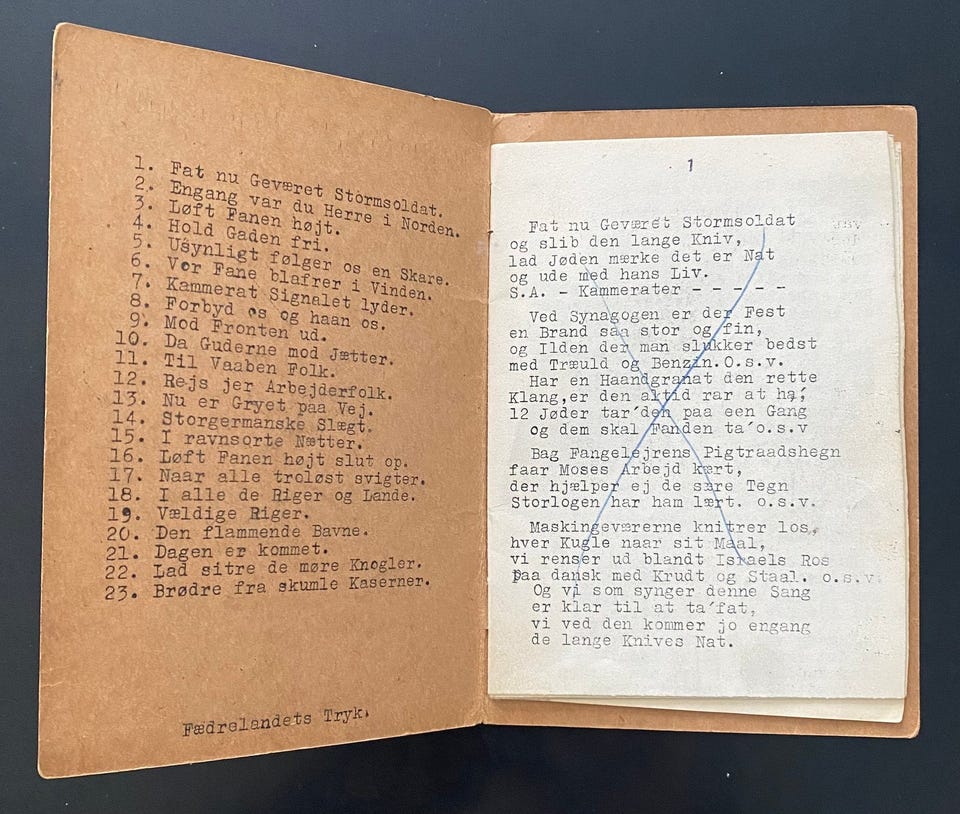 1. Fat nu Geværet Stormsoldat.
2. Engang var du Herre i Norden.
3. Løft Fanen højt.
4. Hold Gaden fri.
5. Usynligt følger os en Skare.
6. Vor Fane blafrer i Vinden.
7. Kammerat Signalet lyder.
8. Forbyd os og haan os.
9. Mod Fronten ud.
10. Da Guderne mod Jætter.
11. Til Vaaben Folk.
12. Rejs jer Arbejderfolk.
13. Nu er Gryet paa Vej.
14. Storgermanske Slægt.
15. I ravnsorte Nætter.
16. Løft Fanen højt slut op.
17. Naar alle troløst svigter.
18. I alle de Riger og Lande.
19. Vældige Riger.
20. Den flammende Bavne.
21. Dagen er kommet.
22. Lad sitre de møre Knogler.
23. Brødre fra skumle Kaserner.
Fædrelandets Tryk.
1
Fat nu Geværet Stormsoldat
og slib den lange Kniv,
lad Jøden mærke det er Nat
og ude med hans Liv.
S.A. - Kammerater - - - - -
Ved Synagogen er der Fest
en Brand saa stor og fin,
og Ilden der man slukker bedst
med Træuld og Benzin. O.s.v.
Har en Haandgranat den rette
Klang, er den altid rar at ha,
12 Jøder tar'den paa een Gang
og dem skal Fanden ta'o.s.v
Bag Fangelejrens Pigtraadshegn
faar Moses Arbejd kært,
der hjælper ej de sare Tegn
Storlogen har ham lært. o.s.v.
Maskingeværerne knitrer los,
hver Kugle naar sit Maal,
vi renser ud blandt Israels Ros
paa dansk med Krudt og Staal. o.s.v.
Og vi som synger denne Sang
er klar til at ta'fat,
vi ved den kommer jo engang
de lange Knives Nat.